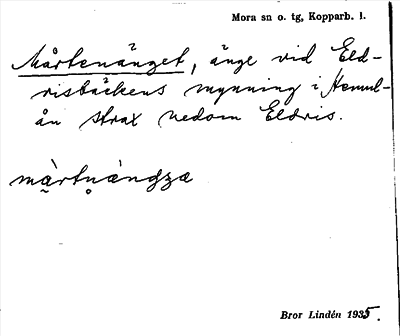 Mora sn o. tg, Kopparb. l.
Mårtenänget, änge vid Eld-
risbäckens mynning i Hemul-
ån strax nedom Eldris.
mą̀rtn̥ándzæ
Bror Lindén 1935.